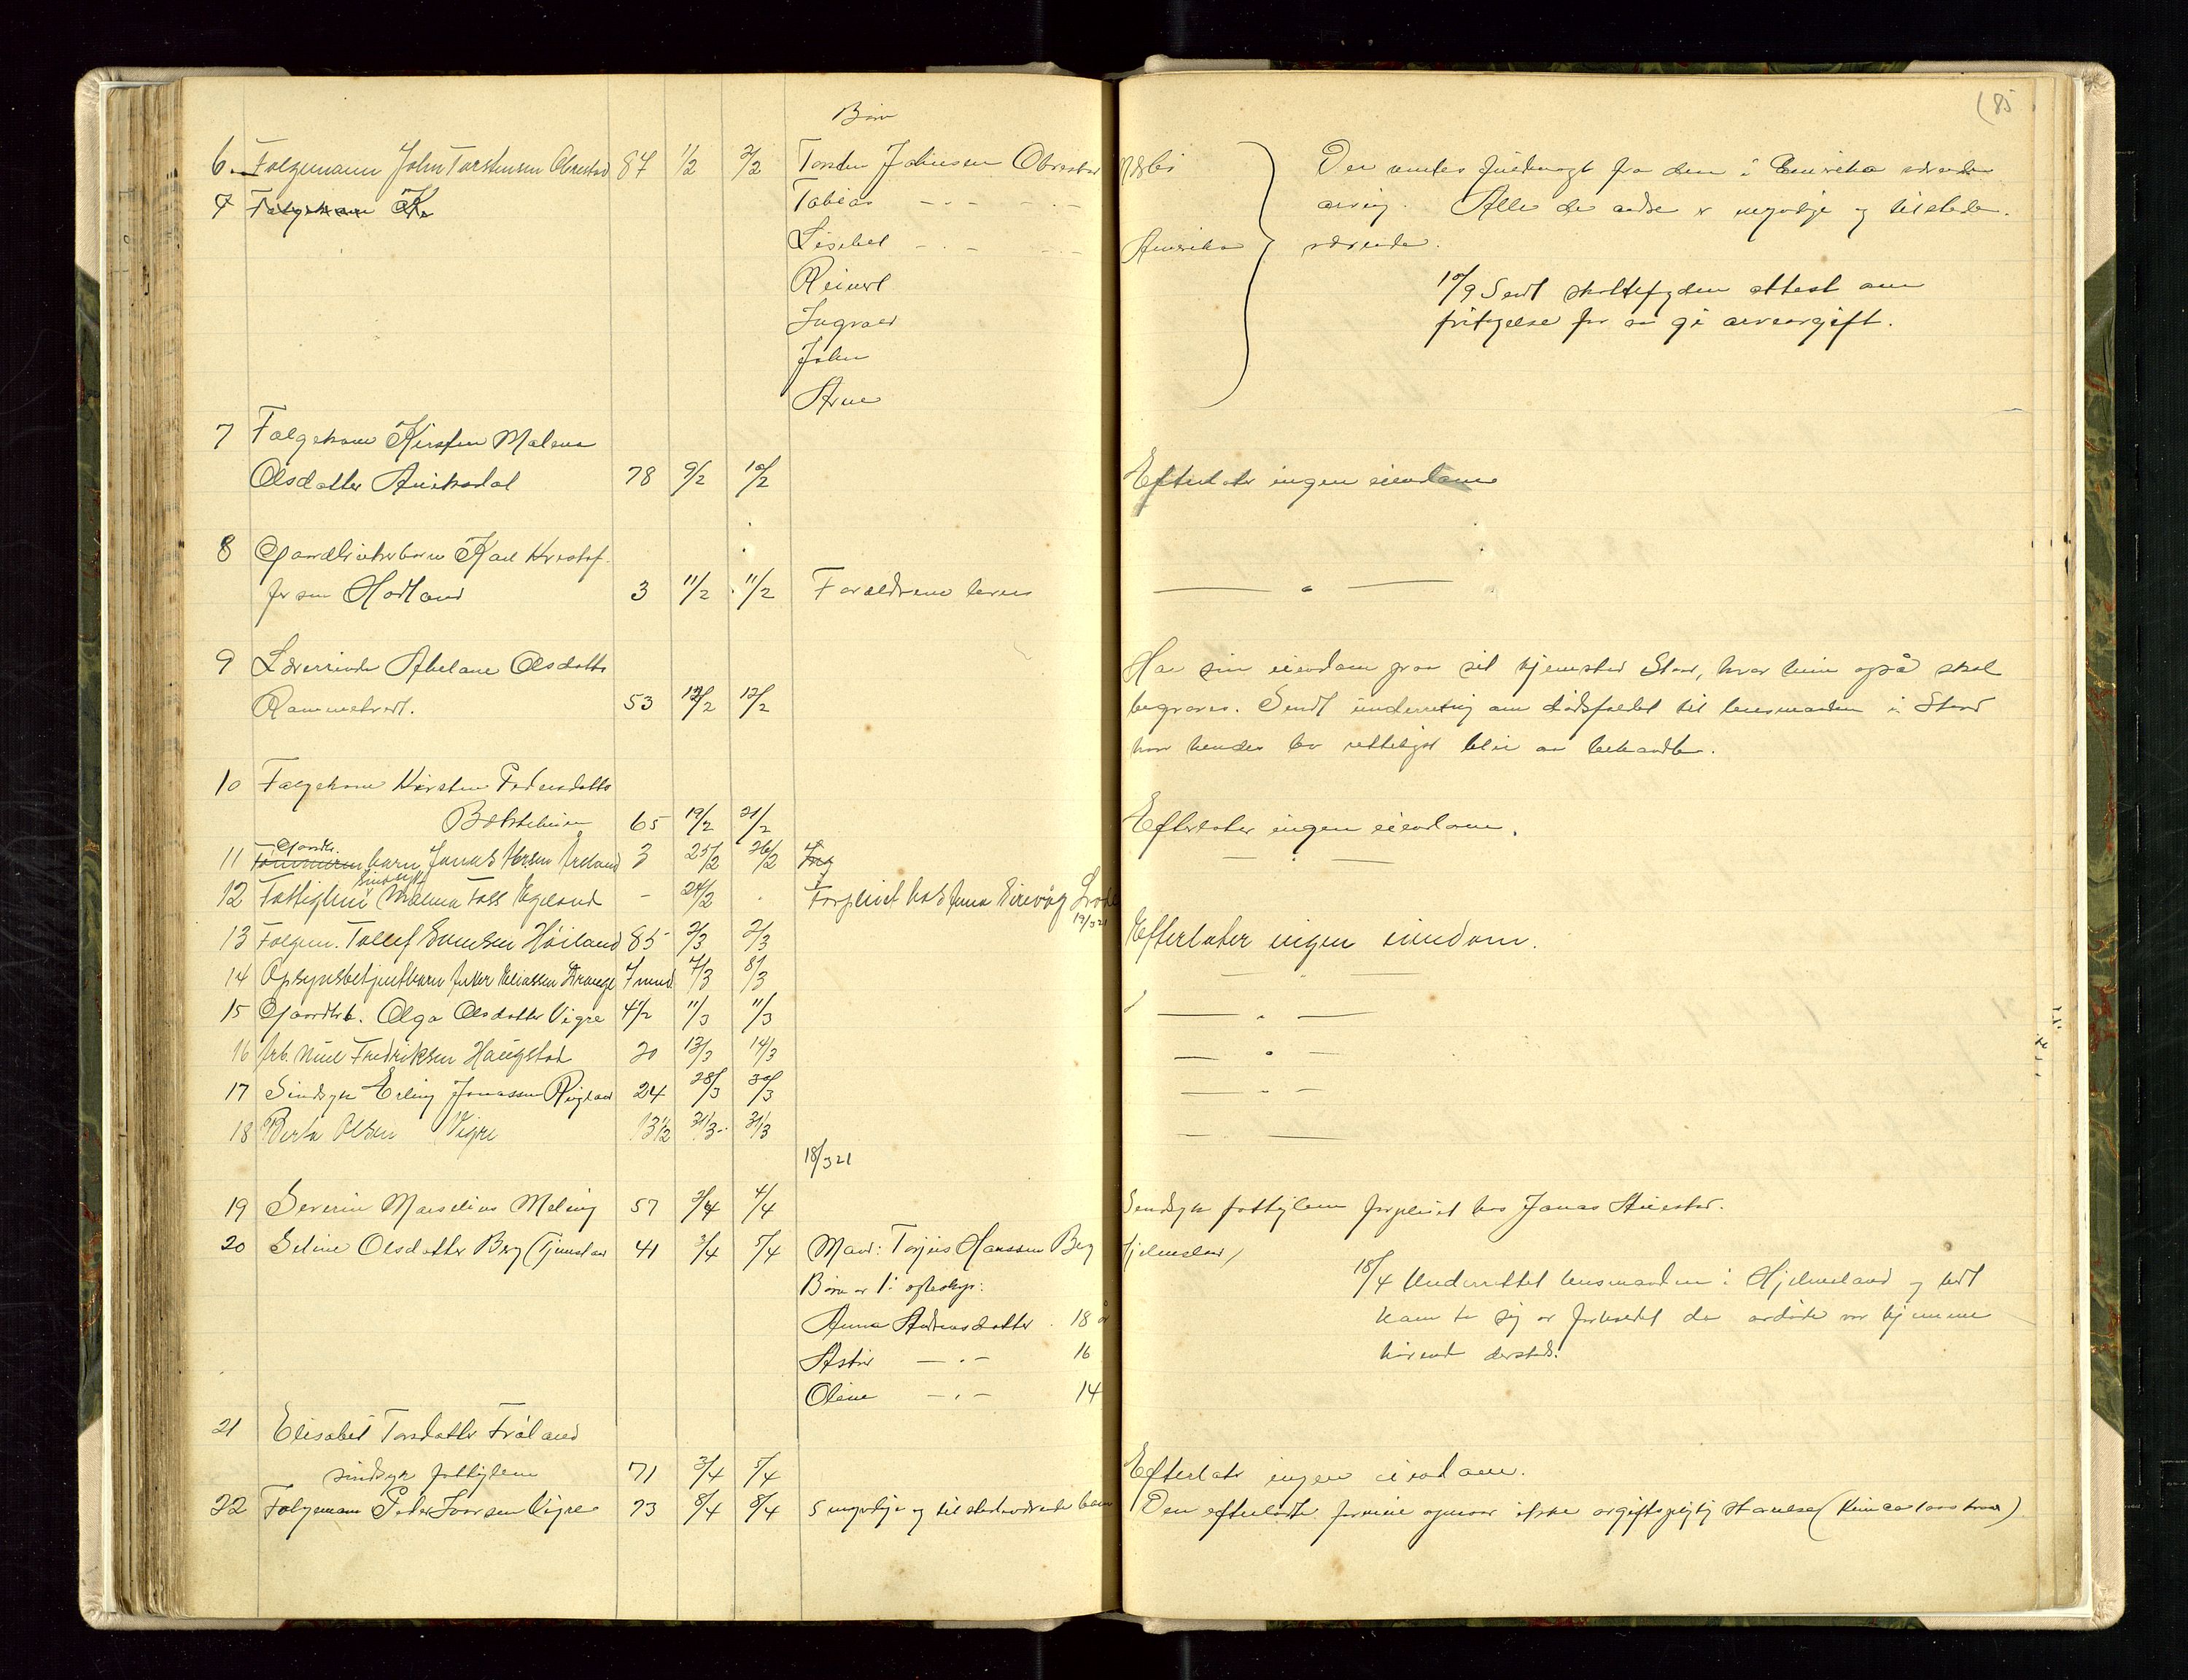 Børn
(85
6. Følgemann John Torstensen Obrestad 84 1/2 2/2 Torsten Johnsen Obrestad Nærbø
7 Følgekone K
Tobias — . — — . —
Lisebet — . — — . — Amerika
Reinert
Ingvald
John
Arne
Der ventes fuldmagt fra den i Amerika værende
arving. Alle de andre er myndige og tilstede-
værende.
10/9 Sendt skattefogden attest om
fritagelse for at gi arveavgift.
7 Følgekone Kirsten Malena
Olsdatter Auiksdal 78 9/2 10/2 Efterlater ingen eiendom
8 Gaardbrukerbarn Karl Kristof-
fersen Hodland 3 11/2 11/2 Forældrene lever — " —
9 Lærerinde Abelone Olsdatter
Rommetveit. 53 12/2 12/2
Har sin eiendom paa sit hjemsted Stord, hvor hun også skal
begraves. Sendt underretning om dødsfaldet til lensmanden i Stord
hvor hendes bo rettelig blir at behandle.
10 Følgekone Kirsten Pedersdatter
Bokstehuen 65 19/2 21/2 Efterlater ingen eiendom.
11 Gaardb. barn Jonas Iversen Årland 3 25/2 26/2 — " —
12 Fattiglem sindssyk Malena Toll Egeland - 24/2 . Forpleiet hos Anna Sirevåg
12/3 21
13 Følgem. Tollef Svendsen Høiland 85 2/3 2/3 Efterlater ingen eiendom.
14 Opsynsbetjentbarn Peder Eliassen Drange 7 mnd 7/3 8/3 — " —
15 Gaardbrb. Olga Olsdatter Vigre 4 1/2 11/3 11/3 — " —
16 Arb. Nils Fredriksen Haugstad 20 13/3 14/3 — " —
17 Sindsyk Erling Jonassen Rugland 24 28/3 30/3 — " —
18 Berta Olsen Vigre 13 1/2 31/3 31/3 — —
18/3 21
19 Severin Marselius Meling 57 2/4 4/4 Sindsyk fattiglem forpleiet hos Jonas Auestad.
20 Seline Olsdatter Berg (Hjelmeland 41 3/4 5/4 Mand: Torjus Hanssen Berg Hjelmeland)
Børn av 1. egteskap:
Anna Andreasdatter . 18 år
Astri — . — 16
Oline — . — 14
18/4 Underrettet lensmanden i Hjelmeland og bedt
ham ta sig av forholdet da avdøde var hjemme
hørende dersteds.
21 Elisabet Torsdatter Fröland
sindsyk fattiglem 71 3/4 5/4 Efterlater ingen eiendom.
22 Følgemann Peder Ivarsen Vigre 73 8/4 8/4 5 myndige og tilstedeværende børn Den efterlatte formue opnaar ikke avgiftspligtig størrelse